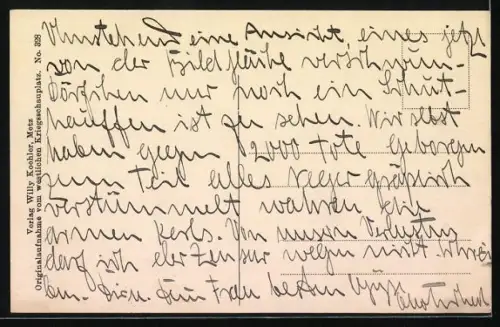 Umstehend eine Ansicht, eines jetzt
von der Bildfläche verschwun-
Dörfchen nur noch ein Schutt-
hauffen ist zu sehen. Wir selbst
haben gegen 2000 tote geborgen
zum Teil alles Neger gräßlich
verstümmelt wahren die
armen Kerls. Von unsern Verlusten
darf ich der Zensur wegen nicht schrei
ben. Dir u. Frau besten
Verlag Willy Koehler, Metz
Originalaufnahme vom westlichen Kriegsschauplatz. No. 328